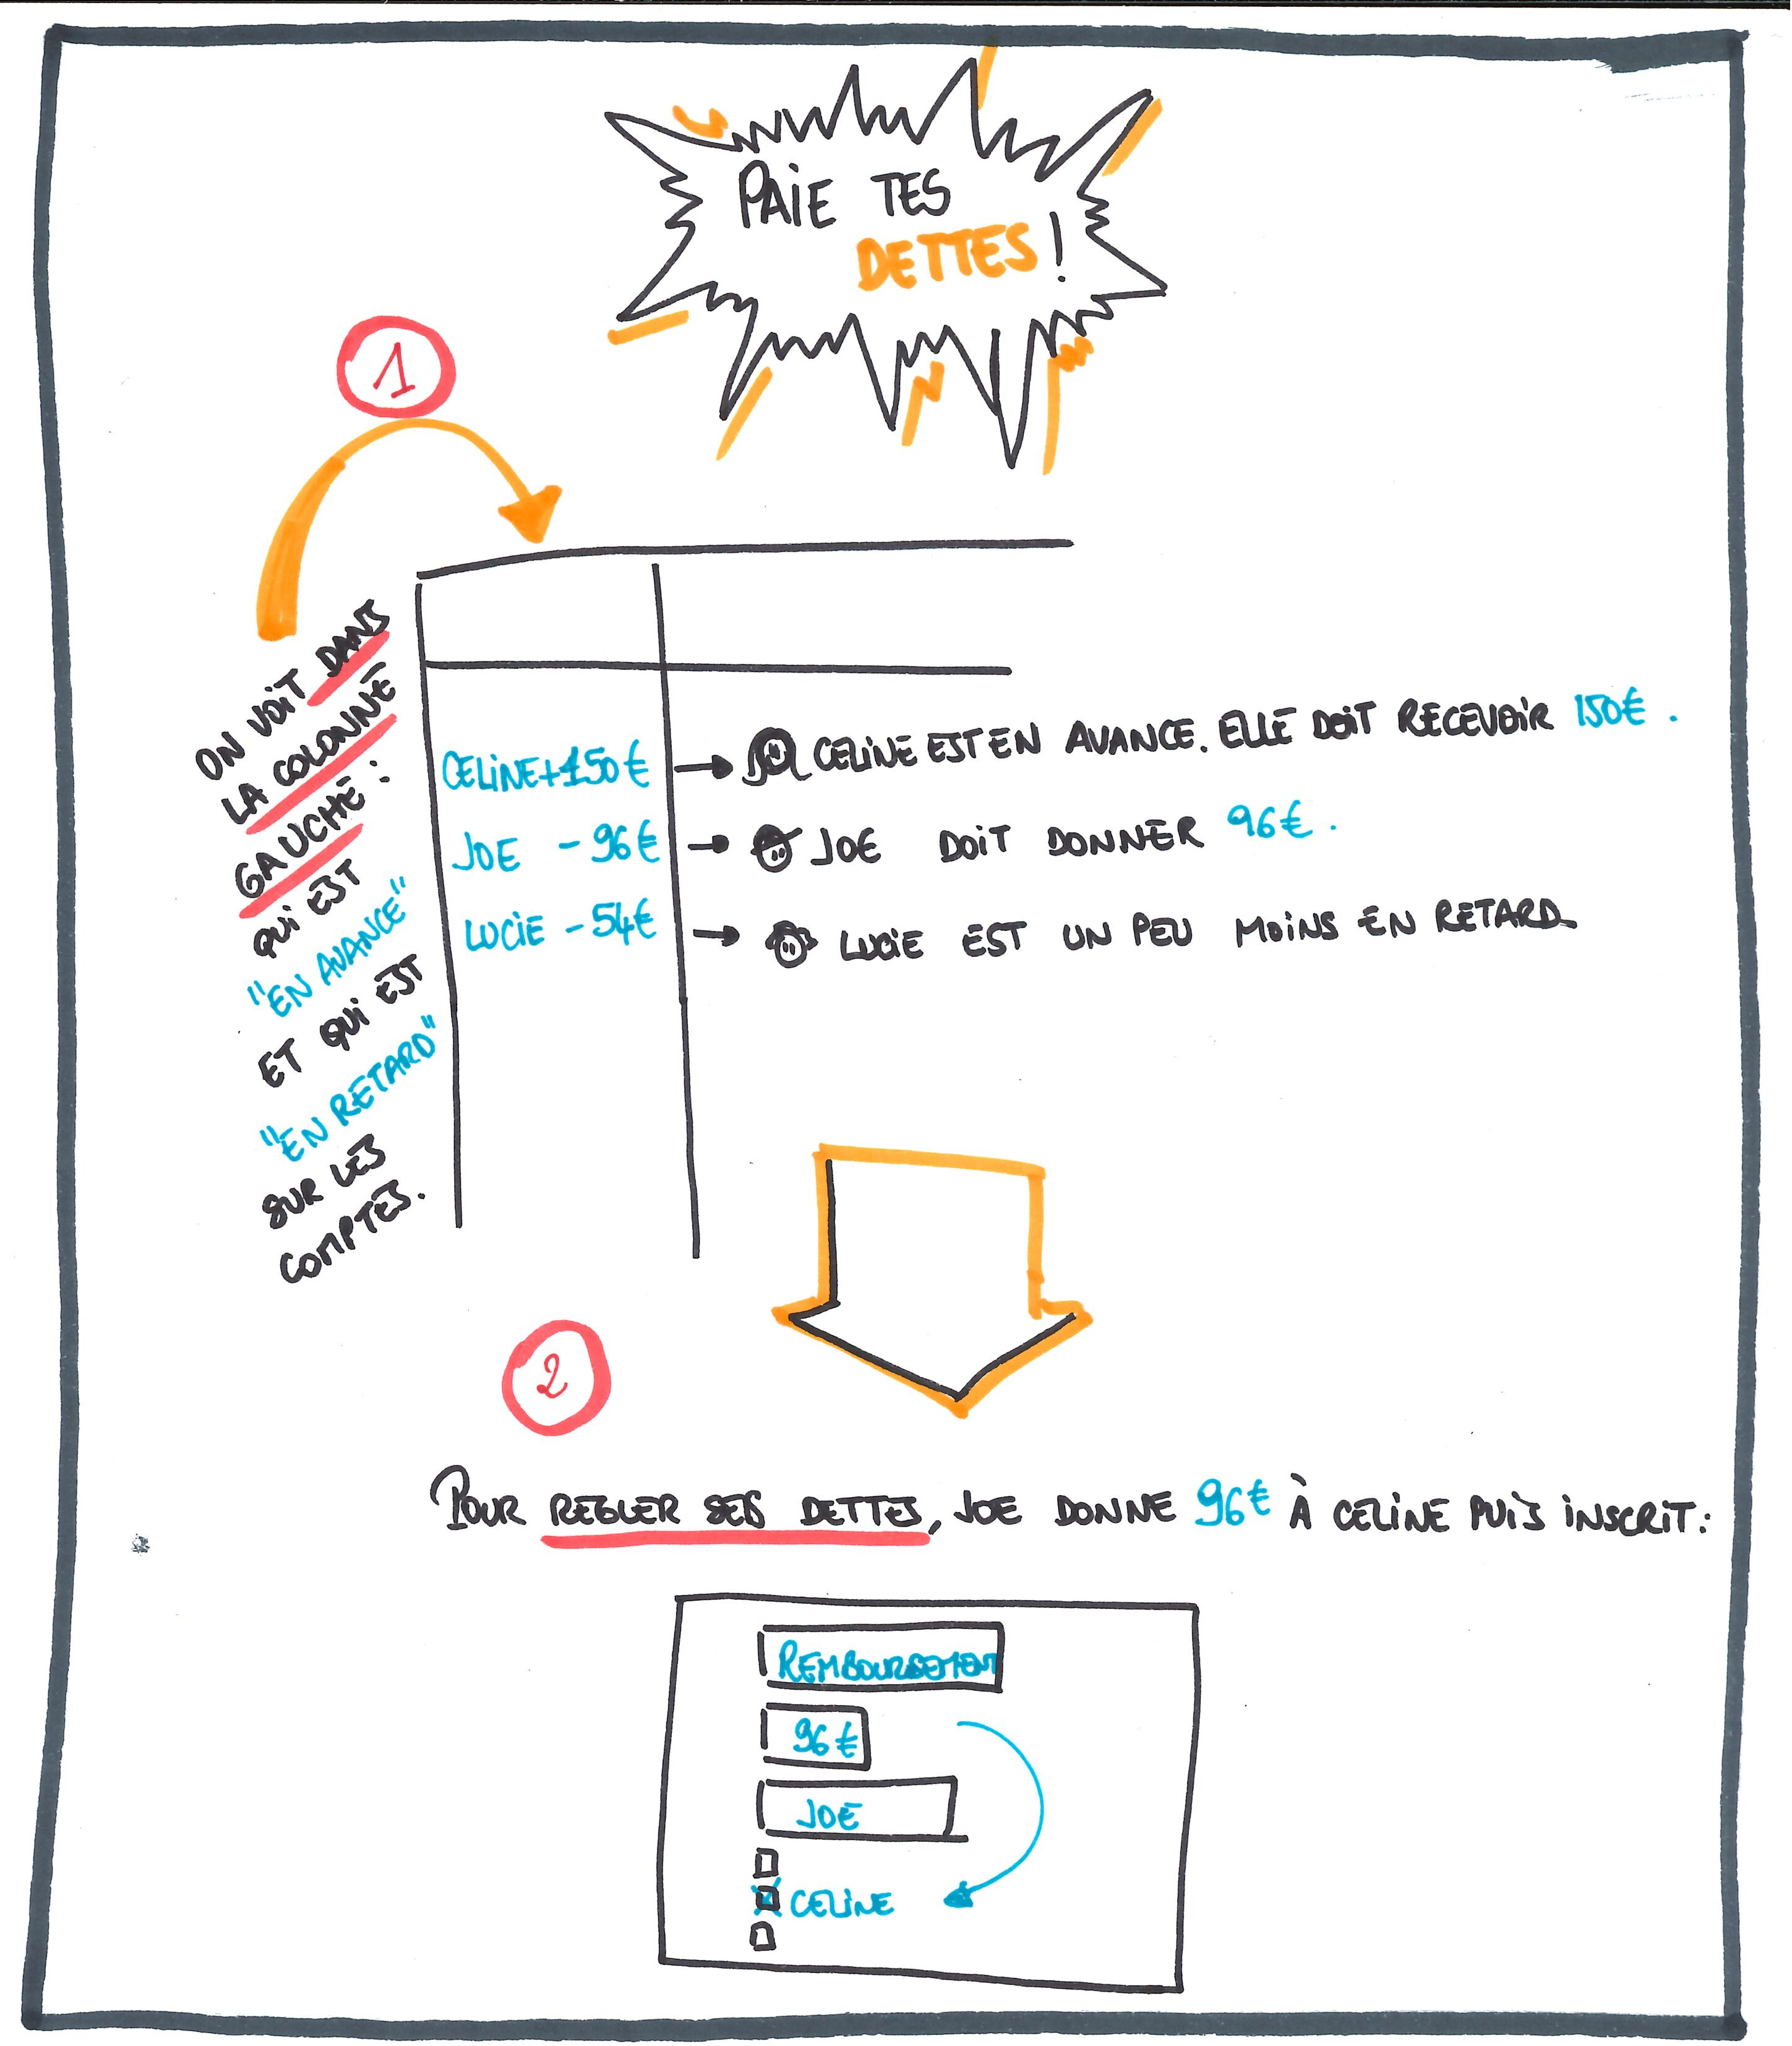 PAIE TES
DETTES !
1
ON VOIT DANS
LA COLONNE
GAUCHE :
QUI EST
"EN AVANCE"
ET QUI EST
"EN RETARD"
SUR LES
COMPTES.
CELINE +150€ → CELINE EST EN AVANCE. ELLE DOIT RECEVOIR 150€.
JOE -96€ → JOE DOIT DONNER 96€.
LUCIE -54€ → LUCIE EST UN PEU MOINS EN RETARD
2
POUR REGLER SES DETTES, JOE DONNE 96€ À CELINE PUIS INSCRIT :
REMBOURSEMENT
96€
JOE
CELINE